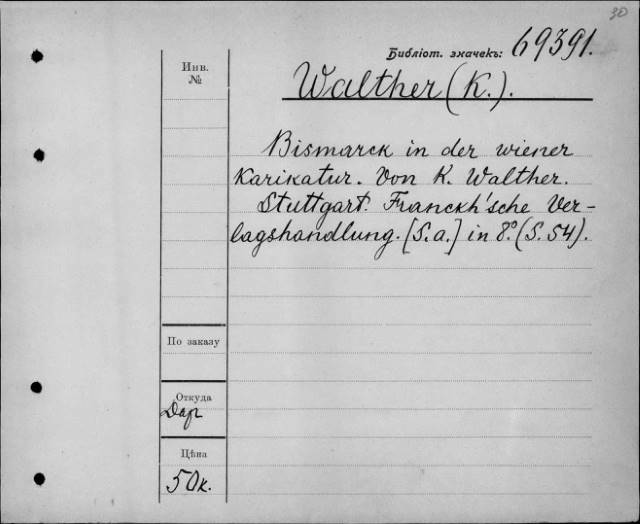 30
Библіот. значекъ: 69391.
Инв.
№
Walther (K.).
Bismarck in der wiener
Karikatur. Von K. Walther.
Stuttgart. Franckh'sche Ver-
lagshandlung. [S.a.] in 8.° (S. 54).
По заказу
Откуда
Дар
Цѣна
50к.